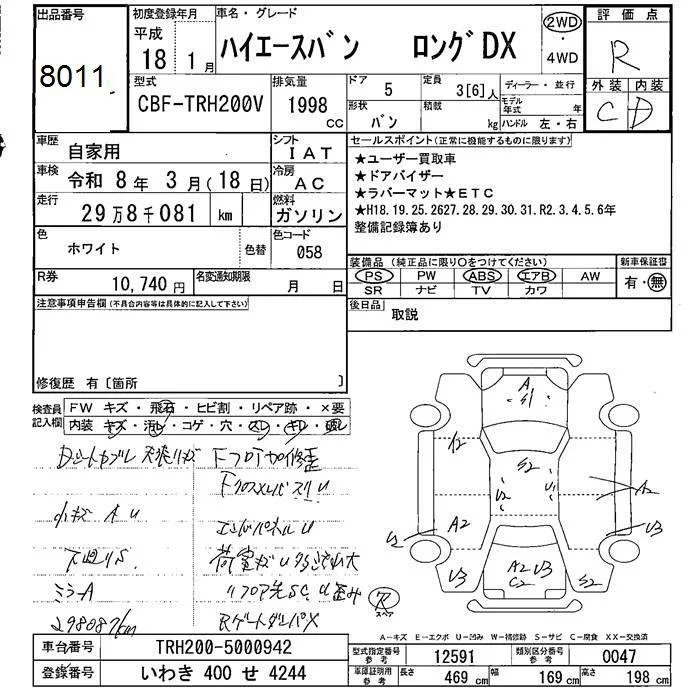 出品番号
8011
初度登録年月
平成
18 年 1 月
車名・グレード
ハイエースバン ロングDX
2WD
・
4WD
評価点
R
外装 内装
C D
型式
CBF-TRH200V
排気量
1998 CC
ドア
5
定員
3[6]人
ディーラー・並行
形状
バン
積載
kg
モデル年式 年
ハンドル 左・右
車歴
自家用
シフト
IAT
車検
令和 8年 3月(18日)
冷房
AC
走行
29万8千081 km
燃料
ガソリン
色
ホワイト
色替
色コード
058
R券
10,740円
名変通知期限
月 日
セールスポイント(正常に機能するものに限ります)
★ユーザー買取車
★ドアバイザー
★ラバーマット★ETC
★H18.19.25.2627.28.29.30.31.R2.3.4.5.6年
整備記録簿あり
装備品(純正品に限り○をつけてください)
PS PW ABS エアB AW
SR ナビ TV カワ
新車保証書
有・無
後日品
取説
注意事項申告欄(不具合内容等は具体的に記入して下さい)
修復歴 有〔箇所 〕
検査員記入欄
FW キズ・飛石・ヒビ割・リペア跡・×要
内装 キズ・汚レ・コゲ・穴・スレ・キレ・破レ
小キズ A U
下廻りS
ミラーA
298087km
Fフロア加修歪
エンドパネルU
Rゲートダンパ×
A
S1
A2
S2
U2
U1
A2
A2
U3
U3
A2 U3
C2
S2
スペア
A-キズ E-エクボ U-凹み W-補修跡 S-サビ C-腐食 XX-交換済
車台番号
TRH200-5000942
登録番号
いわき 400 せ 4244
型式指定番号
参考
12591
類別区分番号
参考
0047
車庫証明用
参考
長さ
469 cm
幅
169 cm
高さ
198 cm